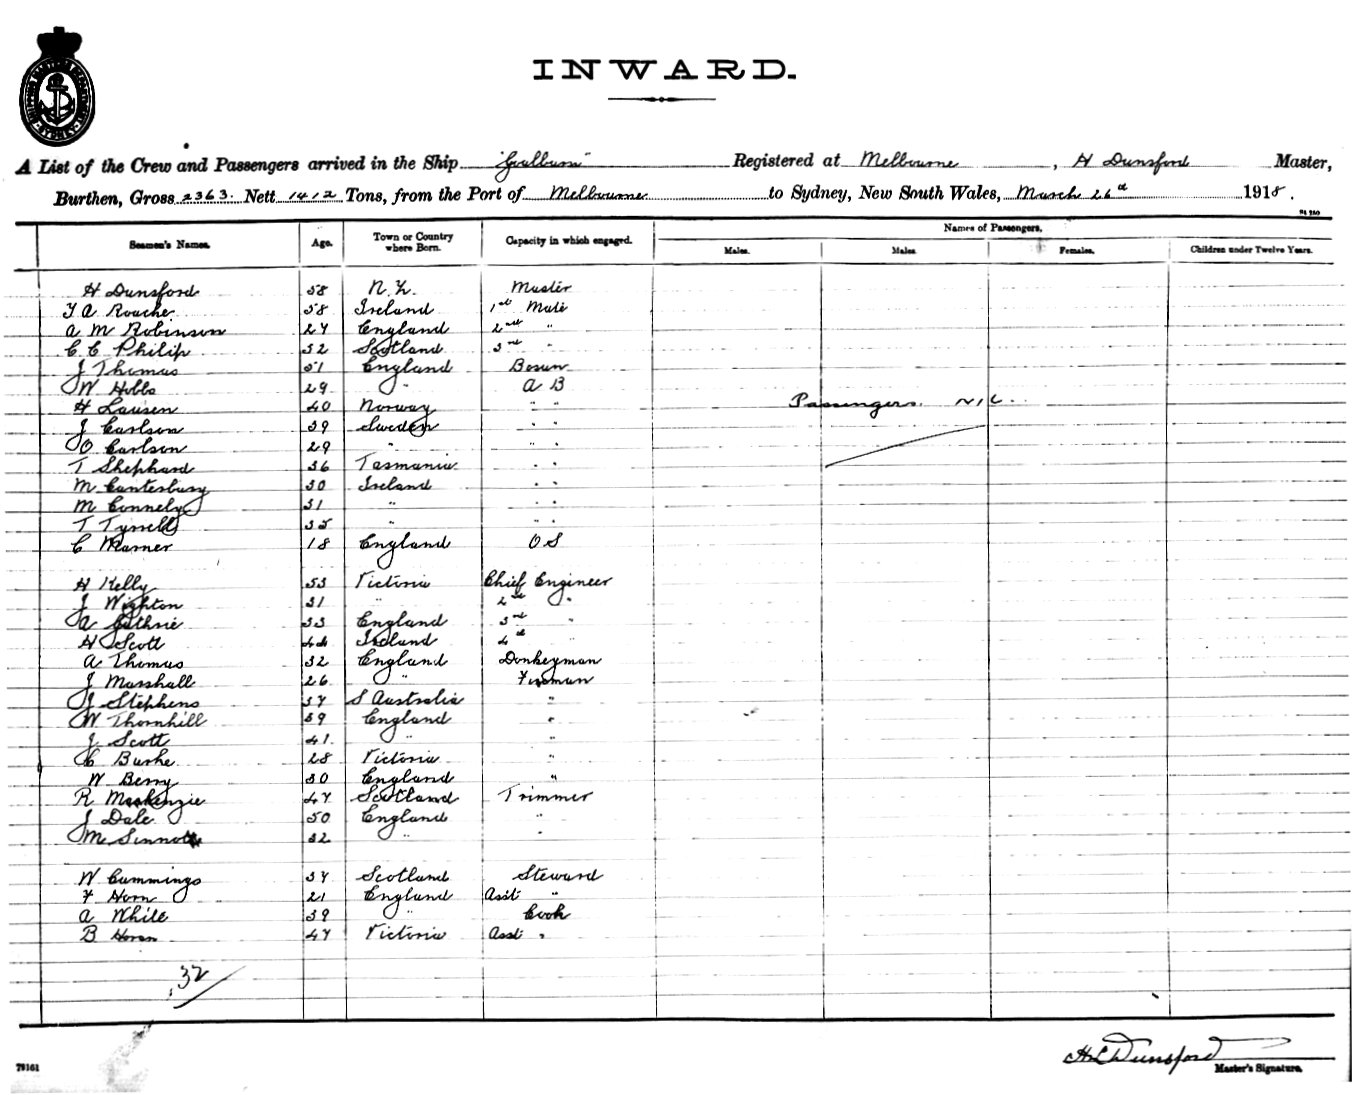 SHIPPING MASTERS DEPARTMENT SYDNEY
INWARD.
A List of the Crew and Passengers arrived in the Ship "Goulburn" Registered at Melbourne, H Dunsford Master,
Burthen, Gross 2363. Nett 1412 Tons, from the Port of Melbourne to Sydney, New South Wales, March 26th 1918.
Names of Passengers.
Seamen's Names. Age. Town or Country where Born. Capacity in which engaged. Males. Males. Females. Children under Twelve Years.
H Dunsford 58 N.Z. Master
T A Roache 58 Ireland 1st Mate
A M Robinson 27 England 2nd "
C C Philip 32 Scotland 3rd "
J Thomas 51 England Bosun
W Hobbs 29 " A B
H Lausen 40 Norway " " Passengers. NIL.
J Carlson 39 Sweden " "
O Carlson 29 " " "
T Shephard 36 Tasmania " "
M Cantesbury 30 Ireland " "
M Connely 31 " " "
T Tyrrell 35 " " "
C Marner 18 England O S
H Kelly 53 Victoria Chief Engineer
J Wighton 31 " 2nd "
A Guthrie 33 England 3rd "
H Scott 44 Ireland 4th "
A Thomas 32 England Donkeyman
J Marshall 26 " Fireman
J Stephens 37 S Australia "
W Thornhill 39 England "
J Scott 41 " "
C Burke 28 Victoria "
W Berry 30 England "
R Mackenzie 47 Scotland Trimmer
J Dale 50 England "
M Sinnott 32 " "
W Cummings 37 Scotland Steward
F Horn 21 England Asst "
A White 39 " Cook
B Horan 47 Victoria Asst "
32
H C Dunsford
79161 Master's Signature.